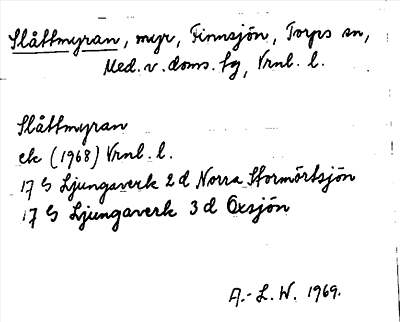 Slåttmyran, myr, Finnsjön, Torps sn,
Med. v. doms. fg, Vrnl. l.
Slåttmyran
ek (1968) Vrnl. l.
17 G Ljungaverk 2 d Norra Stormörtsjön
17 G Ljungaverk 3 d Oxsjön
A.-L.W. 1969.